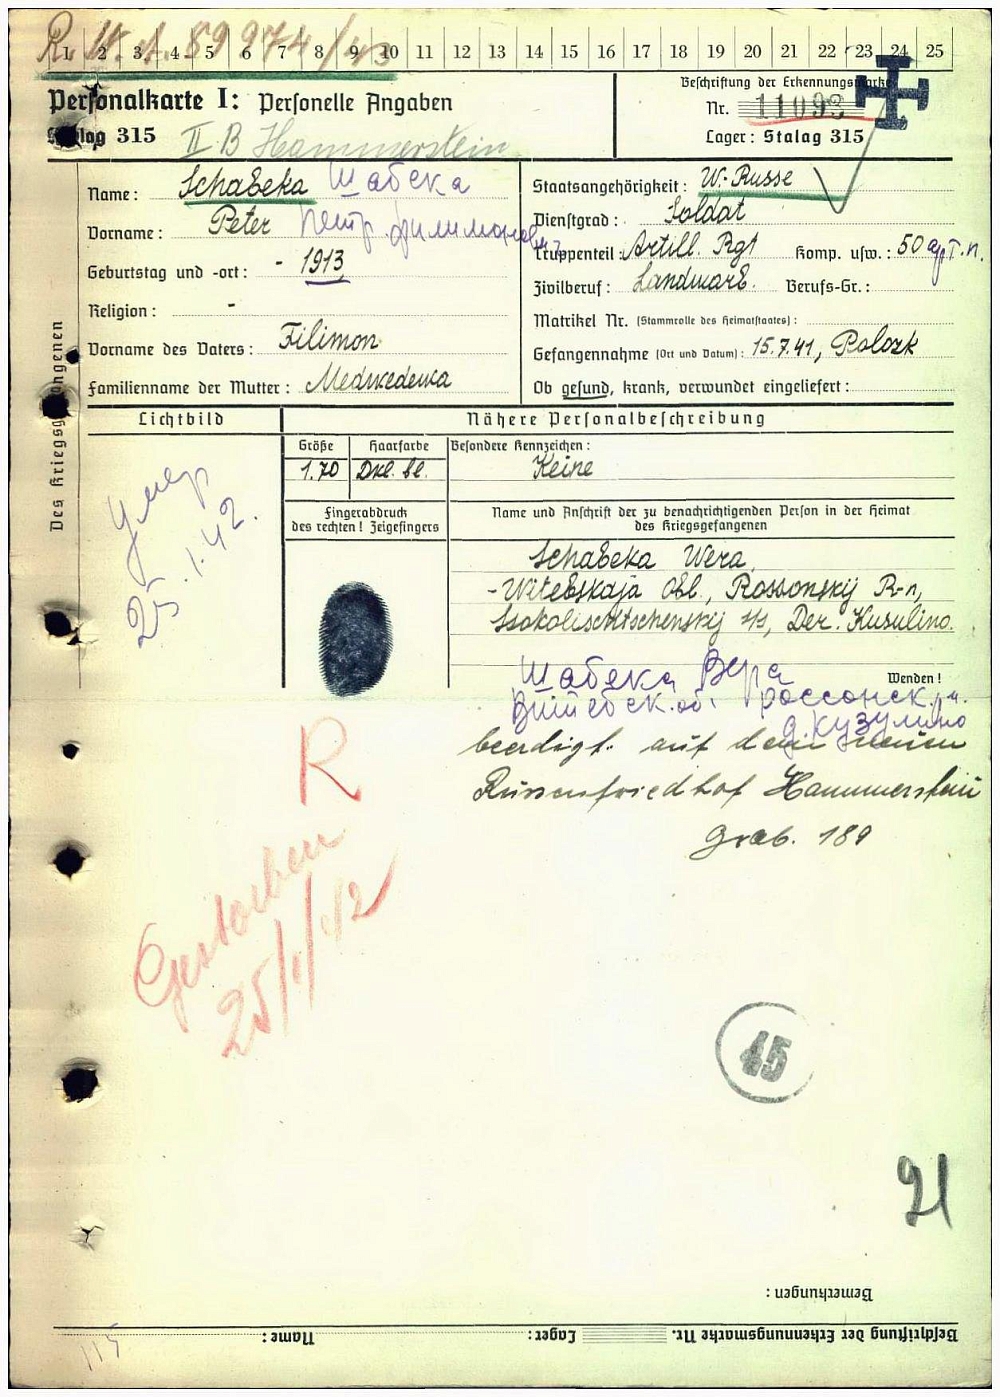 1 2 3 4 5 6 7 8 9 10 11 12 13 14 15 16 17 18 19 20 21 22 23 24 25
Personalkarte I: Personelle Angaben
315
II B Hammerstein
Beschriftung der Erkennungsmarke
Nr. 11093
Lager: Stalag 315
Des Kriegsgefangenen
Name: Schabeka Шабека
Vorname: Peter Петр Филимонович
Geburtstag und -ort: - 1913
Religion: -
Vorname des Vaters: Filimon
Familienname der Mutter: Medwedewa
Staatsangehörigkeit: W.-Russe
Dienstgrad: Soldat
Truppenteil: Artill. Rgt Komp. usw.: 50 арт.п.
Zivilberuf: Landwirt. Berufs-Gr.:
Matrikel Nr. (Stammrolle des Heimatstaates):
Gefangennahme (Ort und Datum): 15.7.41, Polozk
Ob gesund, krank, verwundet eingeliefert:
Lichtbild
Nähere Personalbeschreibung
умер
25.1.42.
Größe Haarfarbe Besondere Kennzeichen:
1.70 Dkl. bl. Keine
Fingerabdruck
des rechten! Zeigefingers
Name und Anschrift der zu benachrichtigenden Person in der Heimat
des Kriegsgefangenen
Schabeka Wera,
-Witebskaja Obl., Rossonskij R-n,
Der. Kusulino.
Шабека Вера
Wenden!
Витебск. об. Россонск. р-н.
д. Кузулино
beerdigt. auf dem neuen
Russenfriedhof Hammerstein
Grab. 189
R
Gestorben
25/1/42
45
21
Bemerkungen:
Beschriftung der Erkennungsmarke Nr. Lager: Name:
115